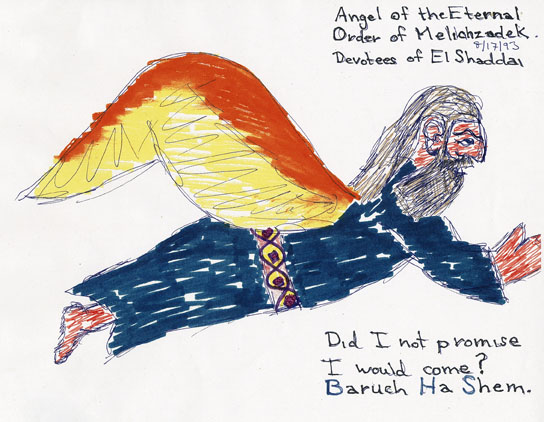 Angel of the Eternal
Order of Melichzadek.
8/17/93
Devotees of El Shaddai
Did I not promise
I would come?
Baruch Ha Shem.